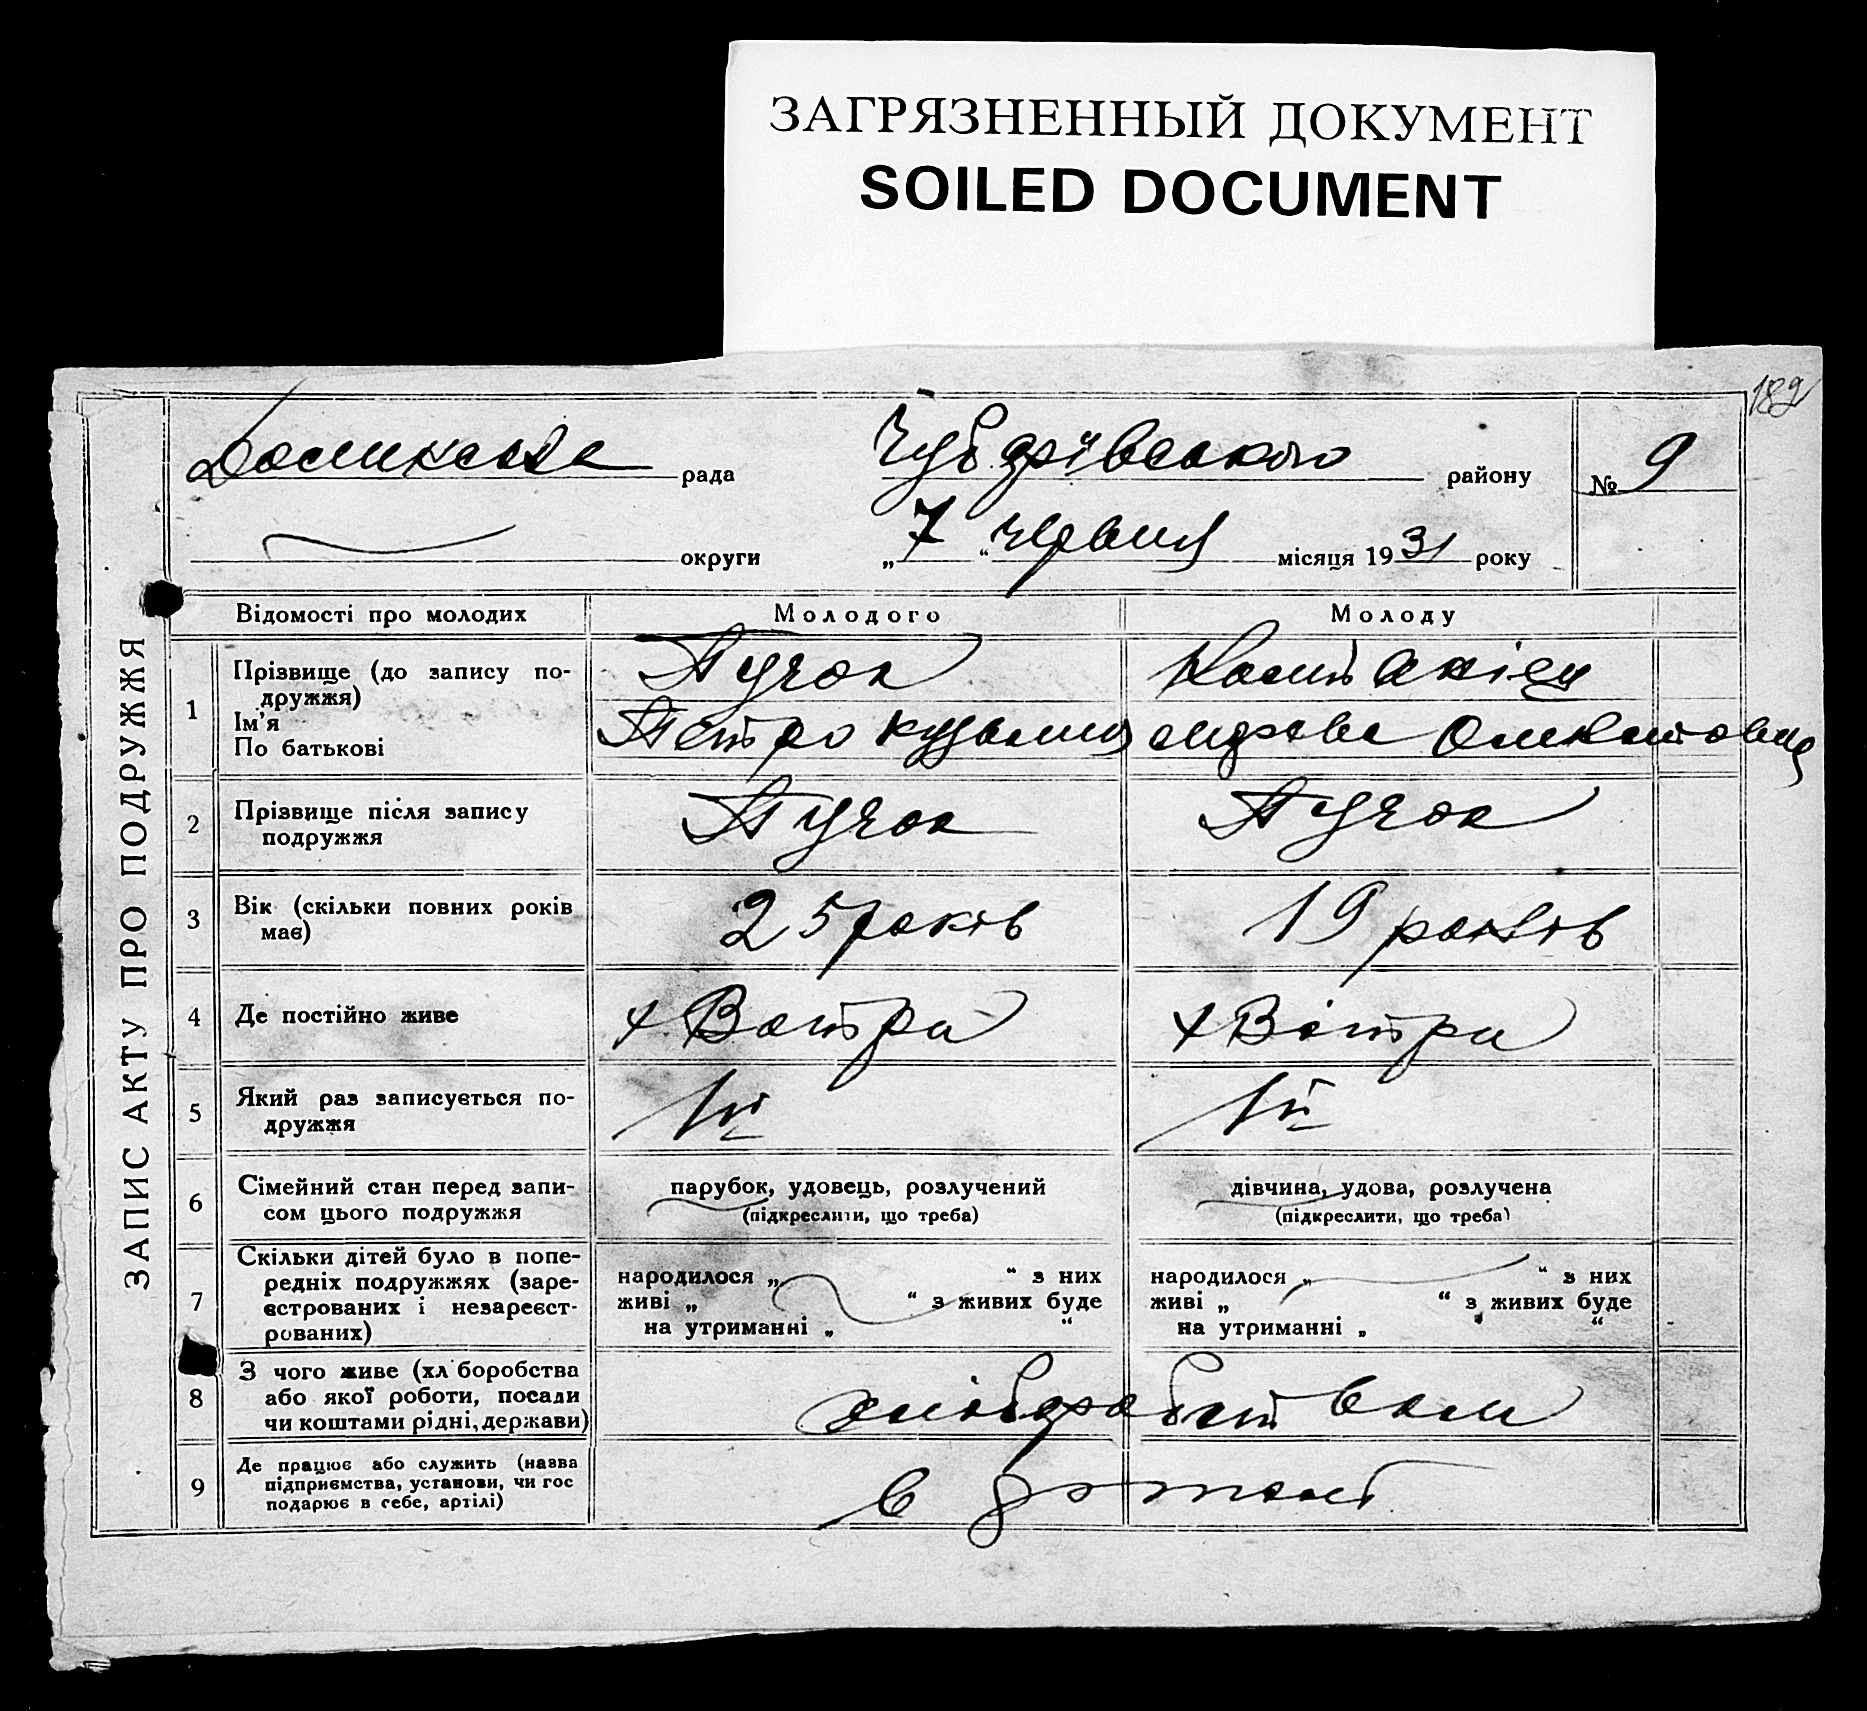 ЗАГРЯЗНЕННЫЙ ДОКУМЕНТ
SOILED DOCUMENT
189
ЗАПИС АКТУ ПРО ПОДРУЖЖЯ
рада району № 9
округи „ 7 “ червня місяця 1931 року
Відомості про молодих Молодого Молоду
1 Прізвище (до запису по-
дружжя)
Ім'я
По батькові
Пучок
Петро
2 Прізвище після запису
подружжя
Пучок Пучок
3 Вік (скільки повних років
має)
25 років 19 років
4 Де постійно живе
х
х
5 Який раз записується по-
дружжя
1й 1й
6 Сімейний стан перед запи-
сом цього подружжя
парубок, удовець, розлучений
(підкреслити, що треба)
дівчина, удова, розлучена
(підкреслити, що треба)
7 Скільки дітей було в попе-
редніх подружжях (заре-
єстрованих і незареєст-
рованих)
народилося „ “ з них
живі „ “ з живих буде
на утриманні „ “
народилося „ “ з них
живі „ “ з живих буде
на утриманні „ “
8 З чого живе (хл боробства
або якої роботи, посади
чи коштами рідні, держави)
хліборобством
9 Де працює або служить (назва
підприємства, установи, чи гос
подарює в себе, артілі)
в